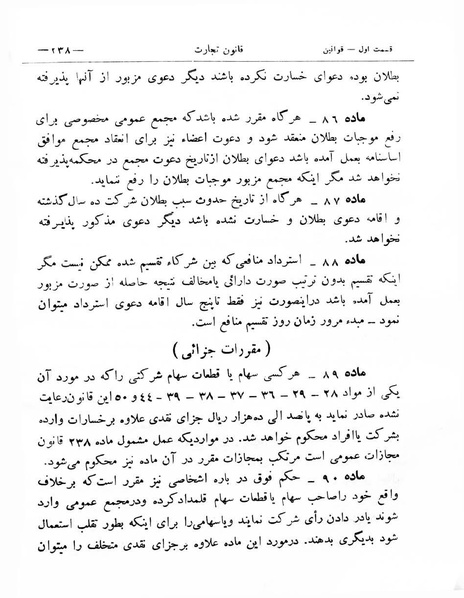 قسمت اول — قوانین قانون تجارت — ۲۳۸ —
بطلان بوده دعوای خسارت نکرده باشند دیگر دعوی مزبور از آنها پذیرفته
نمی‌شود.
ماده ۸۶ — هرگاه مقرر شده باشد که مجمع عمومی مخصوصی برای
رفع موجبات بطلان منعقد شود و دعوت اعضاء نیز برای انعقاد مجمع موافق
اساسنامه بعمل آمده باشد دعوای بطلان ازتاریخ دعوت مجمع در محکمه‌پذیرفته
نخواهد شد مگر اینکه مجمع مزبور موجبات بطلان را رفع ننماید.
ماده ۸۷ — هرگاه از تاریخ حدوث سبب بطلان شرکت ده سال‌گذشته
و اقامه دعوی بطلان و خسارت نشده باشد دیگر دعوی مذکور پذیرفته
نخواهد شد.
ماده ۸۸ — استرداد منافعی‌که بین شرکاء تقسیم شده ممکن نیست مگر
اینکه تقسیم بدون ترتیب صورت دارائی یامخالف نتیجه حاصله از صورت مزبور
بعمل آمده باشد دراینصورت نیز فقط تاپنج سال اقامه دعوی استرداد میتوان
نمود — مبدء مرور زمان روز تقسیم منافع است.
( مقررات جزائی )
ماده ۸۹ — هرکسی سهام یا قطعات سهام شرکتی راکه در مورد آن
یکی از مواد ۲۸ — ۲۹ — ۳۶ — ۳۷ — ۳۸ — ۳۹ — ۴۴ و ۵۰ این قانون‌رعایت
نشده صادر نماید به پانصد الی ده‌هزار ریال جزای نقدی علاوه برخسارات وارده
بشرکت یاافراد محکوم خواهد شد. در مواردیکه عمل مشمول ماده ۲۳۸ قانون
مجازات عمومی است مرتکب بمجازات مقرر در آن ماده نیز محکوم می‌شود.
ماده ۹۰ — حکم فوق در باره اشخاصی نیز مقرر است‌که برخلاف
واقع خود راصاحب سهام یاقطعات سهام قلمدادکرده ودرمجمع عمومی وارد
شوند یادر دادن رأی شرکت نمایند ویاسهامی‌را برای اینکه بطور تقلب استعمال
شود بدیگری بدهند. درمورد این ماده علاوه برجزای نقدی متخلف را میتوان